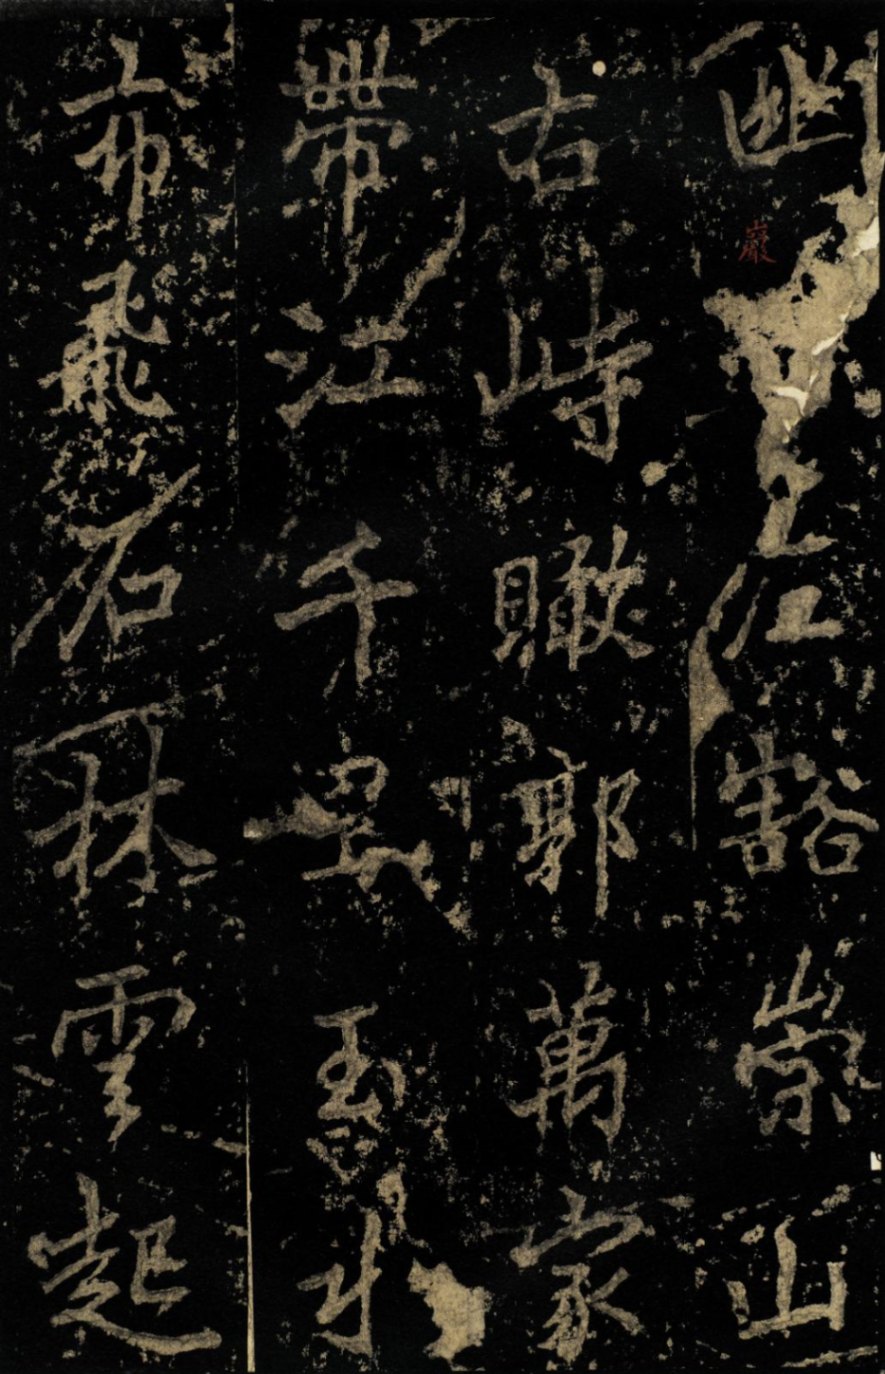 幽巖左豁崇山
右峙瞰郭萬家
帶江千里玉水
布飛石林雲起